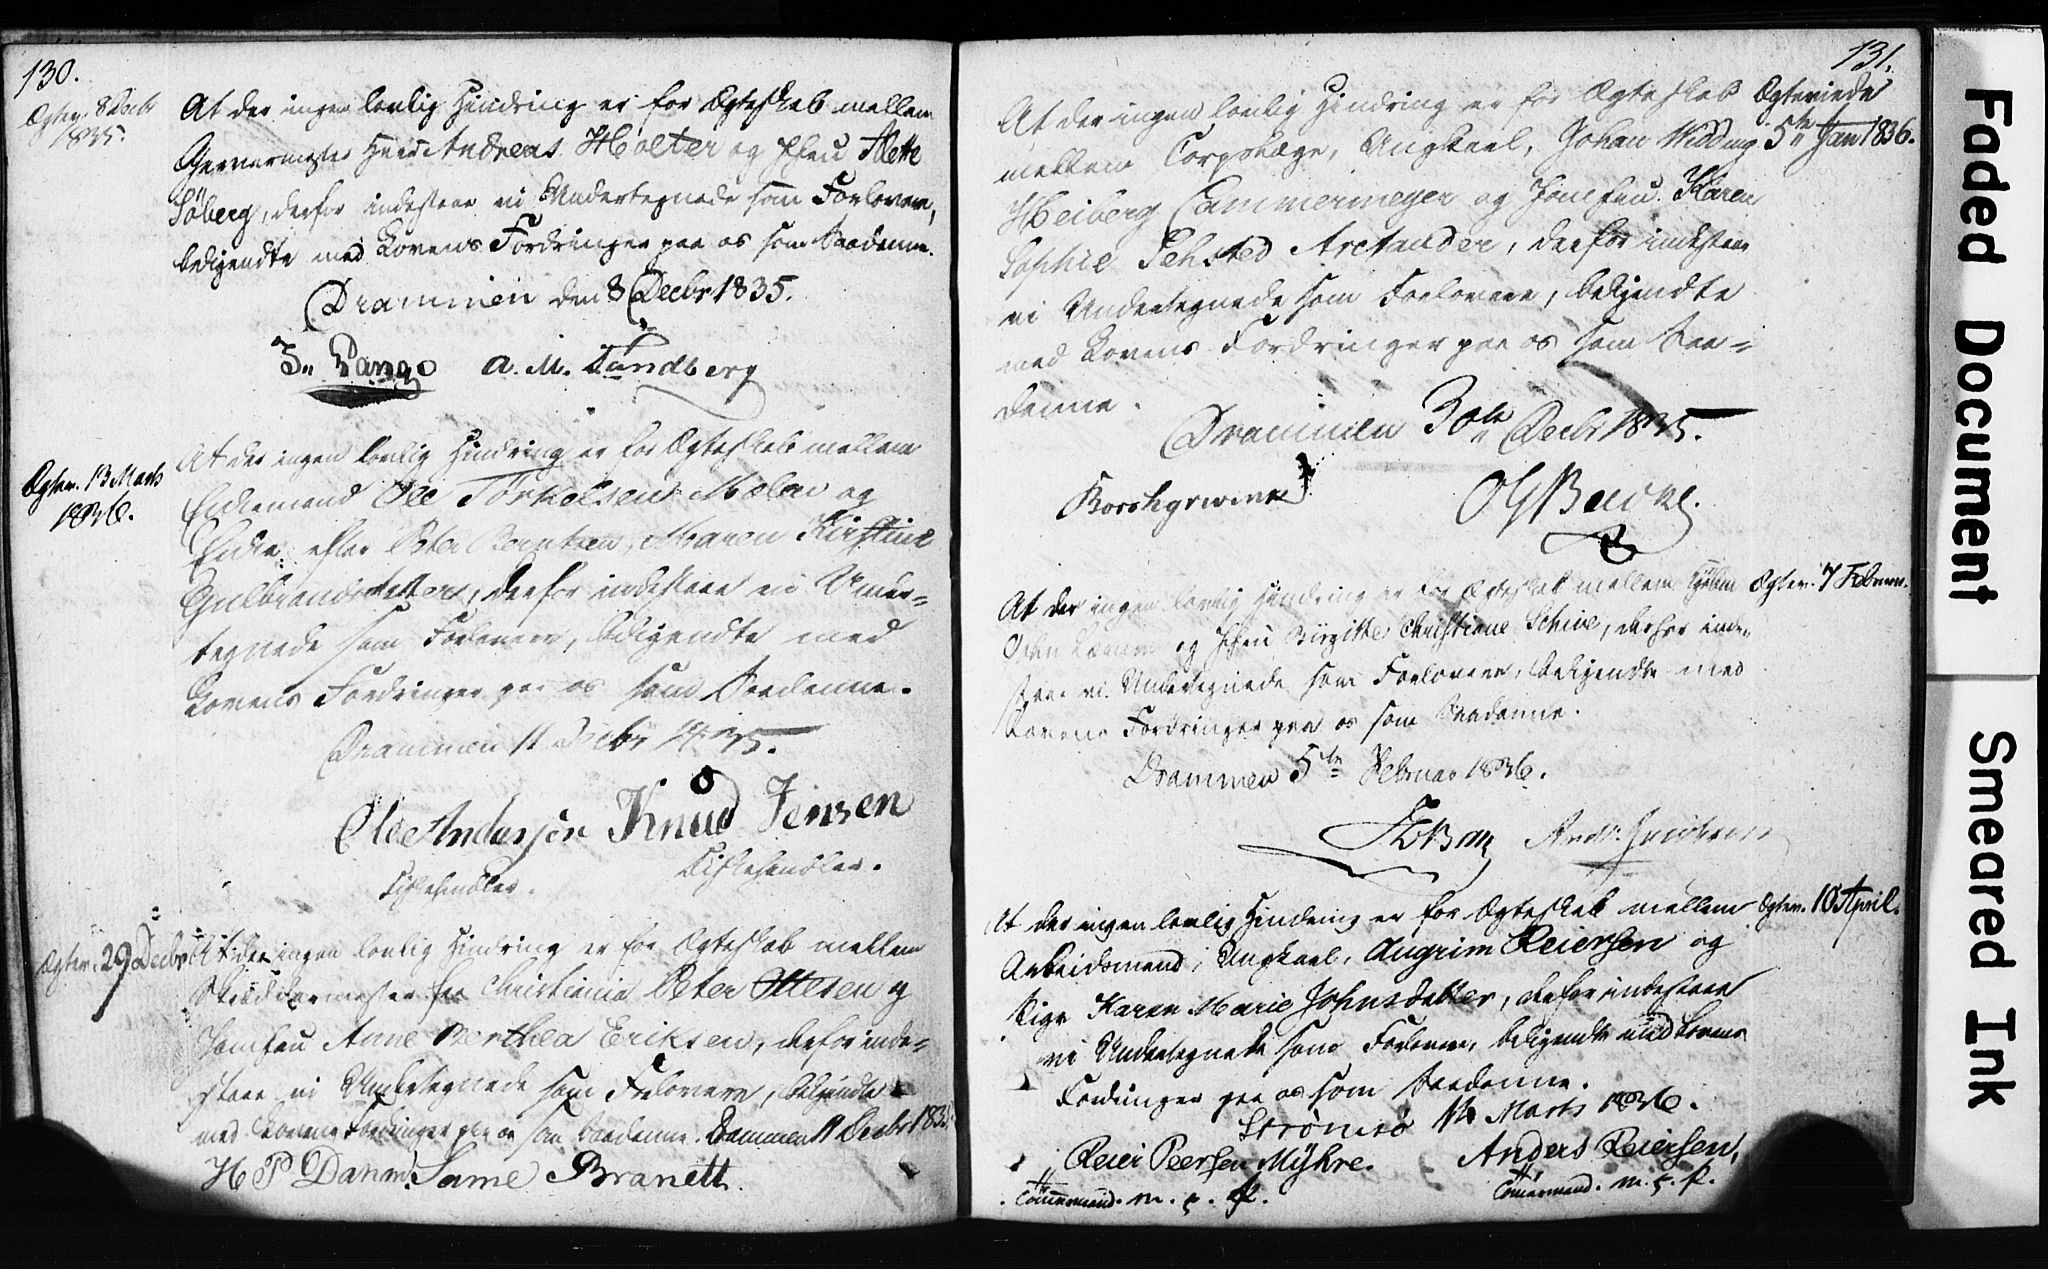 130.
Ægtev. 8 Decbr
1835.
At der ingen lovlig Hindring er for Ægteskab mellem
Garvermester Andreas Holter og Jfru Alette
Söberg, derfor indestaae vi Undertegnede som Forlovere,
bekjendte med Lovens Fordringer paa os som Saadanne.
Drammen den 8 Decbr 1835.
A. M. Tandberg
Ægtev. 13 Marts
1836.
At der ingen lovlig Hindring er for Ægteskab mellem
Enkemand Ole Torkelsen Molen og
Enke efter Peter Berntsen, Maren Kirstine
Gulbrandsdatter, derfor indestaae vi Under-
tegnede som Forlovere, bekjendte med
Lovens Fordringer paa os som Saadanne.
Drammen 11 Decbr 1835.
Ole Andersen Knud Jensen
Ægtev. 29 Decbr
At der ingen lovlig Hindring er for Ægteskab mellem
Skræddermester fra Christiania Peter Ottesen og
Jomfru Anne Berthea Eriksen, derfor inde-
staae vi Undertegnede som Forlovere, bekjendte
med Lovens Fordringer paa os som Saadanne. Drammen 11 Decbr 1835.
H P Danm. Same Branett.
131.
Ægteviede
5te Jan 1836.
At der ingen lovlig Hindring er for Ægteskab
mellem Corpslæge, Ungkarl, Johan Widding
Heiberg Cammermeyer og Jomfru Karen
Sophie Sehsted Arctander, derfor indestaae
vi Undertegnede som Forlovere, bekjendte
med Lovens Fordringer paa os som Saa-
danne.
Drammen 30te Decbr 1835.
Borchgrevink
Ægtev. 7 Februar.
At der ingen lovlig Hindring er for Ægteskab mellem
og Jfru Birgitte Christiane Schive, derfor inde-
staae vi Undertegnede som Forlovere, bekjendte med
Lovens Fordringer paa os som Saadanne.
Drammen 5te Februar 1836.
Ægtev. 10 April.
At der ingen lovlig Hindring er for Ægteskab mellem
Arbeidsmand, Ungkarl, Augrim Reiersen og
Pige Karen Marie Johnsdatter, derfor indestaae
vi Undertegnede som Forlovere, bekjendte med Lovens
Fordringer paa os som Saadanne.
Strömsö Marts 1836.
Reier Peersen Myhre. Anders Reiersen,
Tömmermand. m. p. P. Tömermand. m. p. P.
Faded Document
Smeared Ink